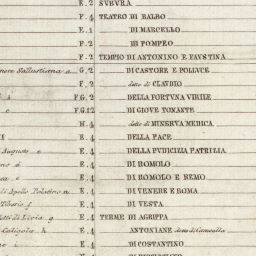 E.2 SVBVRA
F.4 TEATRO DI BALBO
E.1 DI MARCELLO
F. DI POMPEO
F.2 TEMPIO DI ANTONINO E FAVSTINA
G.2 DI CASTORE E POLLVCE
F.2 detto di CLAVDIO
F.G.2 DELLA FORTVNA VIRILE
DI GIOVE TONANTE
H.4 detto di MINERVA MEDICA
E.4 DELLA PACE
Augusto E.4 DELLA PVDICIZIA PATRIZIA
E.4 DI ROMOLO
E.4 DI ROMOLO E REMO
di Apollo Palatino n E.4 DI VENERE E ROMA
Tiberio f E.4 DI VESTA
di Livia g E.4 TERME DI AGRIPPA
Caligola h E.4 ANTONIANE
E.4 DI COSTANTINO